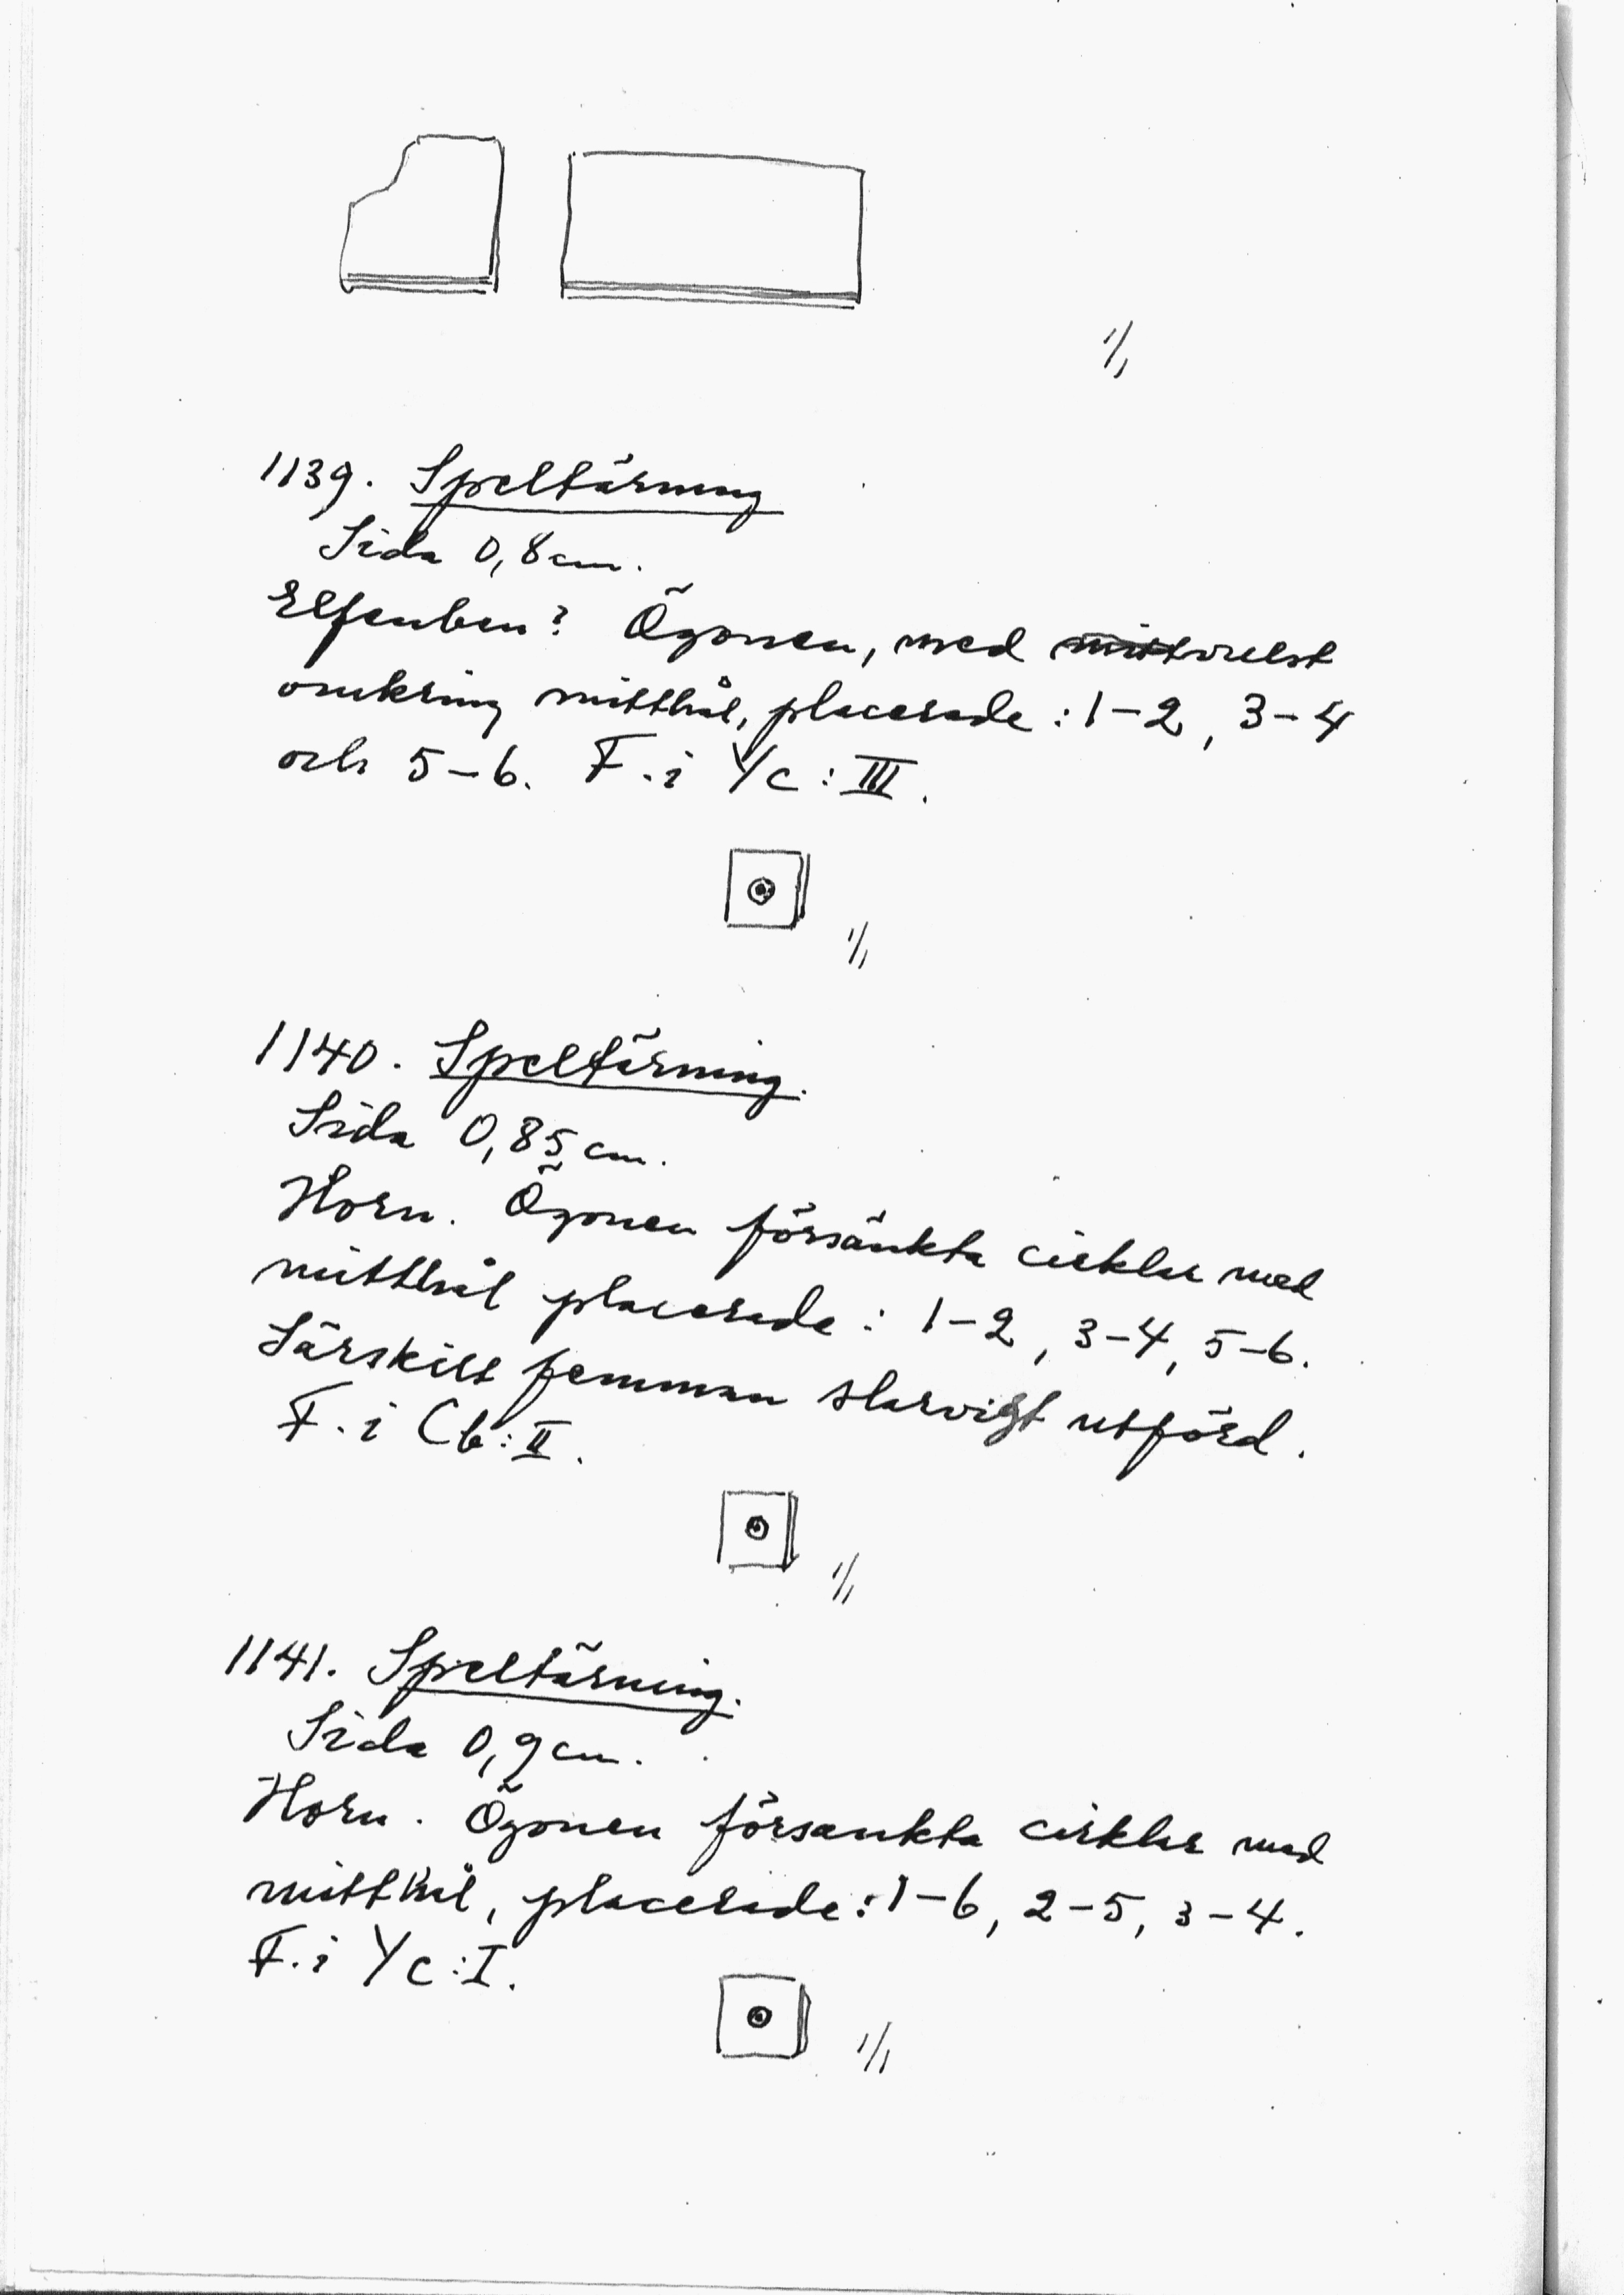 1/1
1139. Speltärning
Sida 0,8 cm.
Elfenben? Ögonen, med vulst
omkring mitthål, placerade: 1-2, 3-4
och 5-6. F. i Yc: III.
1/1
1140. Speltärning.
Sida 0,85 cm.
Horn. Ögonen försänkta cirklar med
mitthål placerade: 1-2, 3-4, 5-6.
Särskilt femman slarvigt utförd.
F. i Cb: II.
1/1
1141. Speltärning.
Sida 0,9 cm.
Horn. Ögonen försankta cirklar med
mitthål, placerade: 1-6, 2-5, 3-4.
F. i Yc: I.
1/1